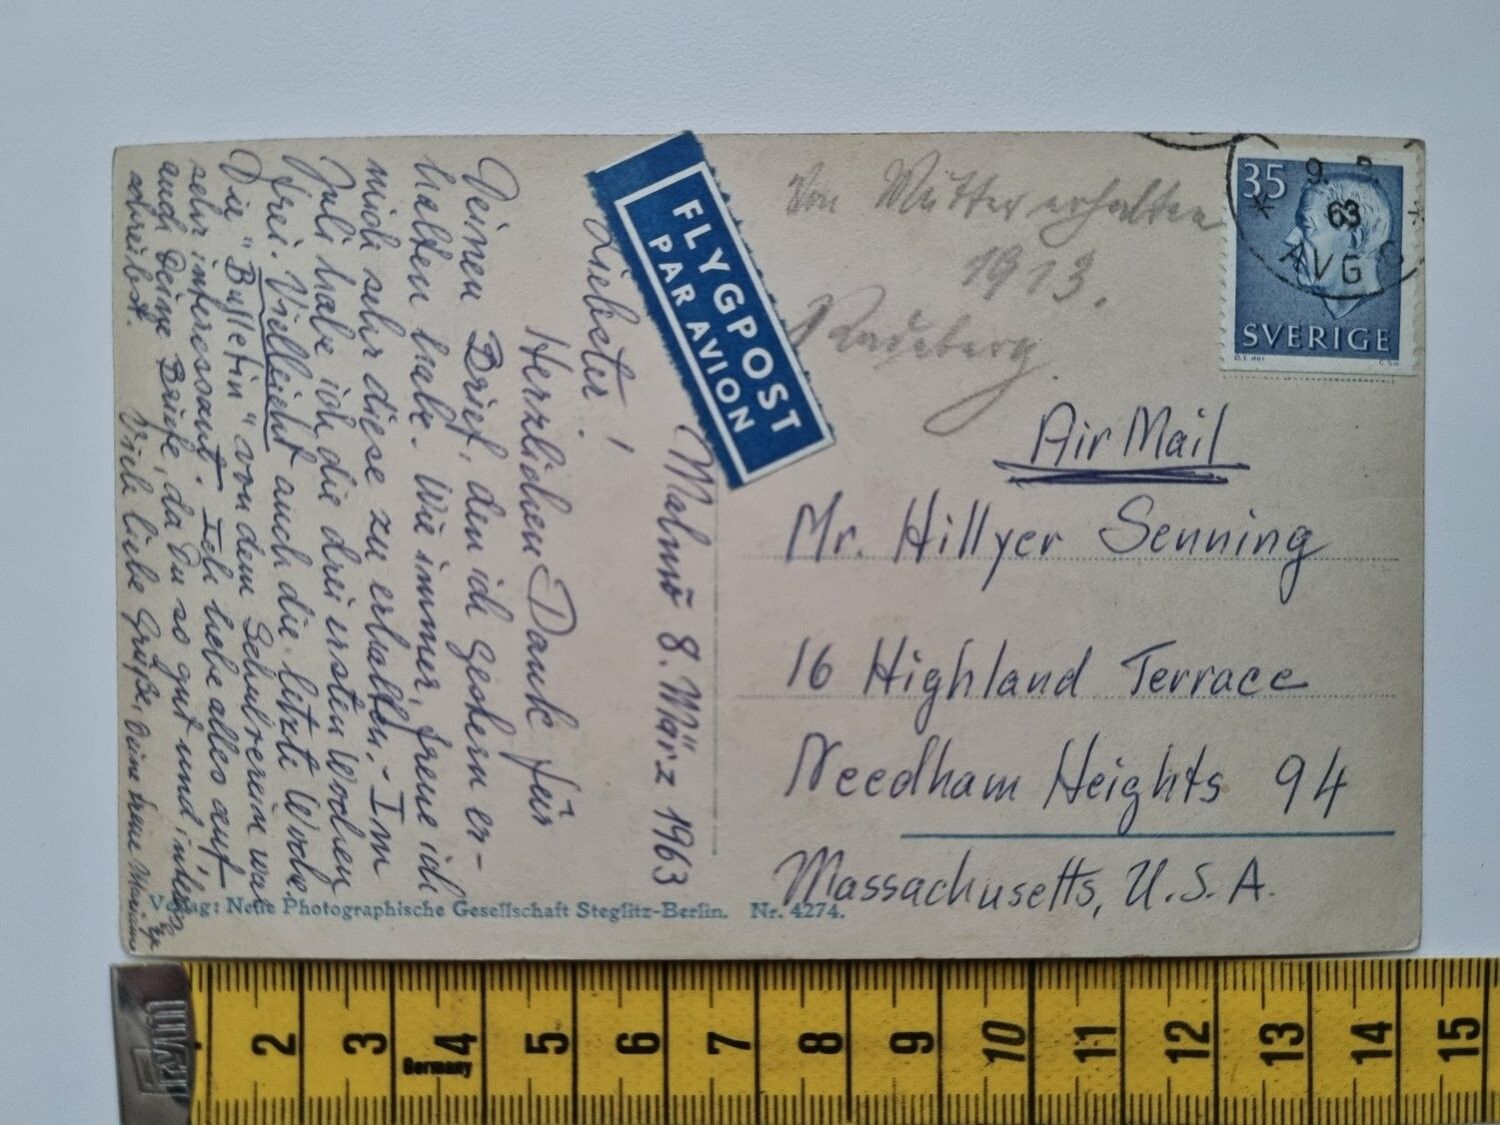 Malmö 8. März 1963
Liebster!
Herzlichen Dank für
Deinen Brief, den ich gestern er-
halten habe. Wie immer, freue ich
mich sehr diese zu erhalten. - Im
Juli habe ich die drei ersten Wochen
frei. Vielleicht auch die letzte Woche.
Die "Bulletin" von dem Schulverein war
sehr interessant. Ich hebe alles auf,
auch Deine Briefe, da Du so gut und
schreibst. Viele liebe Grüße, Deine
FLYGPOST
PAR AVION
Von Mutter erhalten
1913.
Radeberg.
35
SVERIGE
9 3
63
AVG
Air Mail
Mr. Hillyer Senning
16 Highland Terrace
Needham Heights 94
Massachusetts, U.S.A.
Verlag: Neue Photographische Gesellschaft Steglitz-Berlin. Nr. 4274.
2 3 4 5 6 7 8 9 10 11 12 13 14 15
Germany